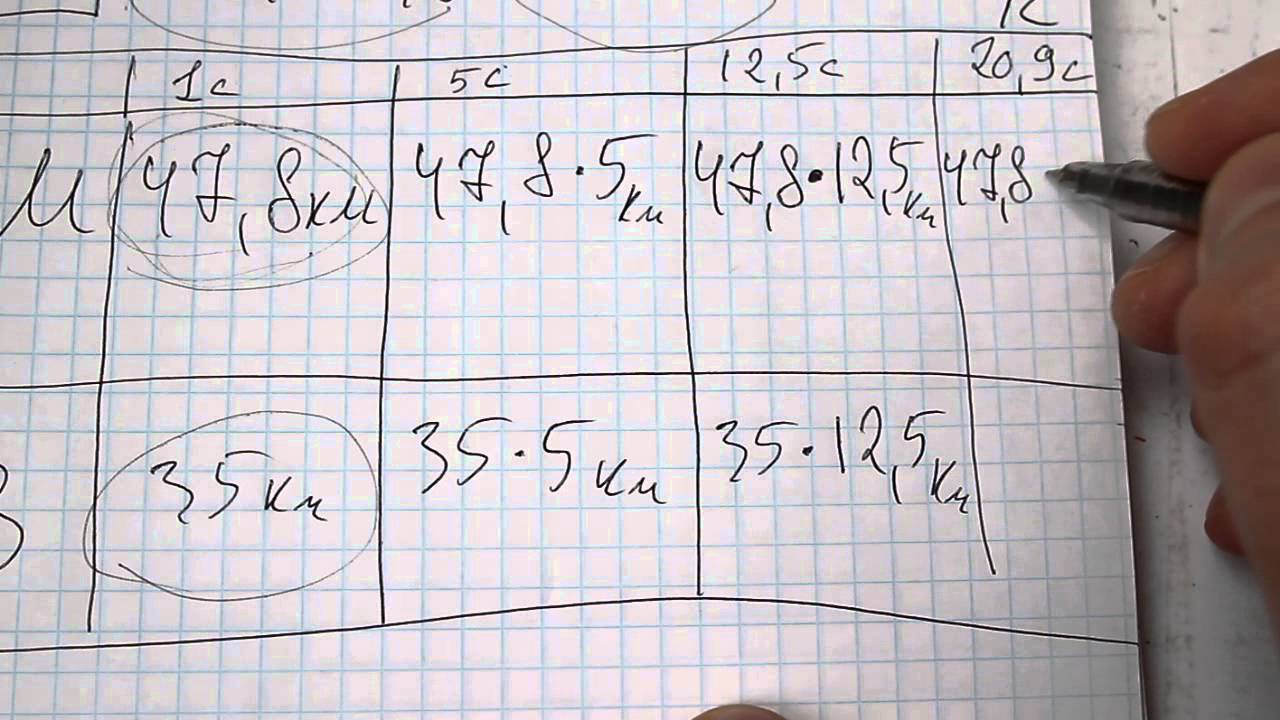 1с 5с 12,5с 20,9с
М 47,8км 47,8·5км 47,8·12,5км 47,8
В 35км 35·5км 35·12,5км